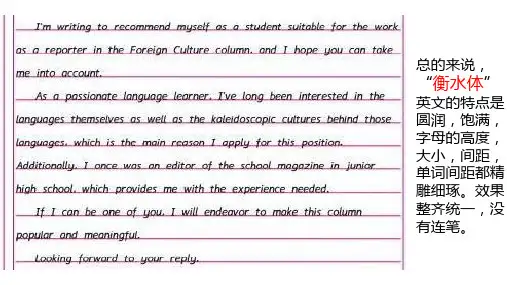 I'm writing to recommend myself as a student suitable for the work
as a reporter in the Foreign Culture column, and I hope you can take
me into account.
As a passionate language learner, I've long been interested in the
languages themselves as well as the kaleidoscopic cultures behind those
languages, which is the main reason I apply for this position.
Additionally, I once was an editor of the school magazine in junior
high school, which provides me with the experience needed.
If I can be one of you, I will endeavor to make this column
popular and meaningful.
Looking forward to your reply.
总的来说，
“衡水体”
英文的特点是
圆润，饱满，
字母的高度，
大小，间距，
单词间距都精
雕细琢。效果
整齐统一，没
有连笔。